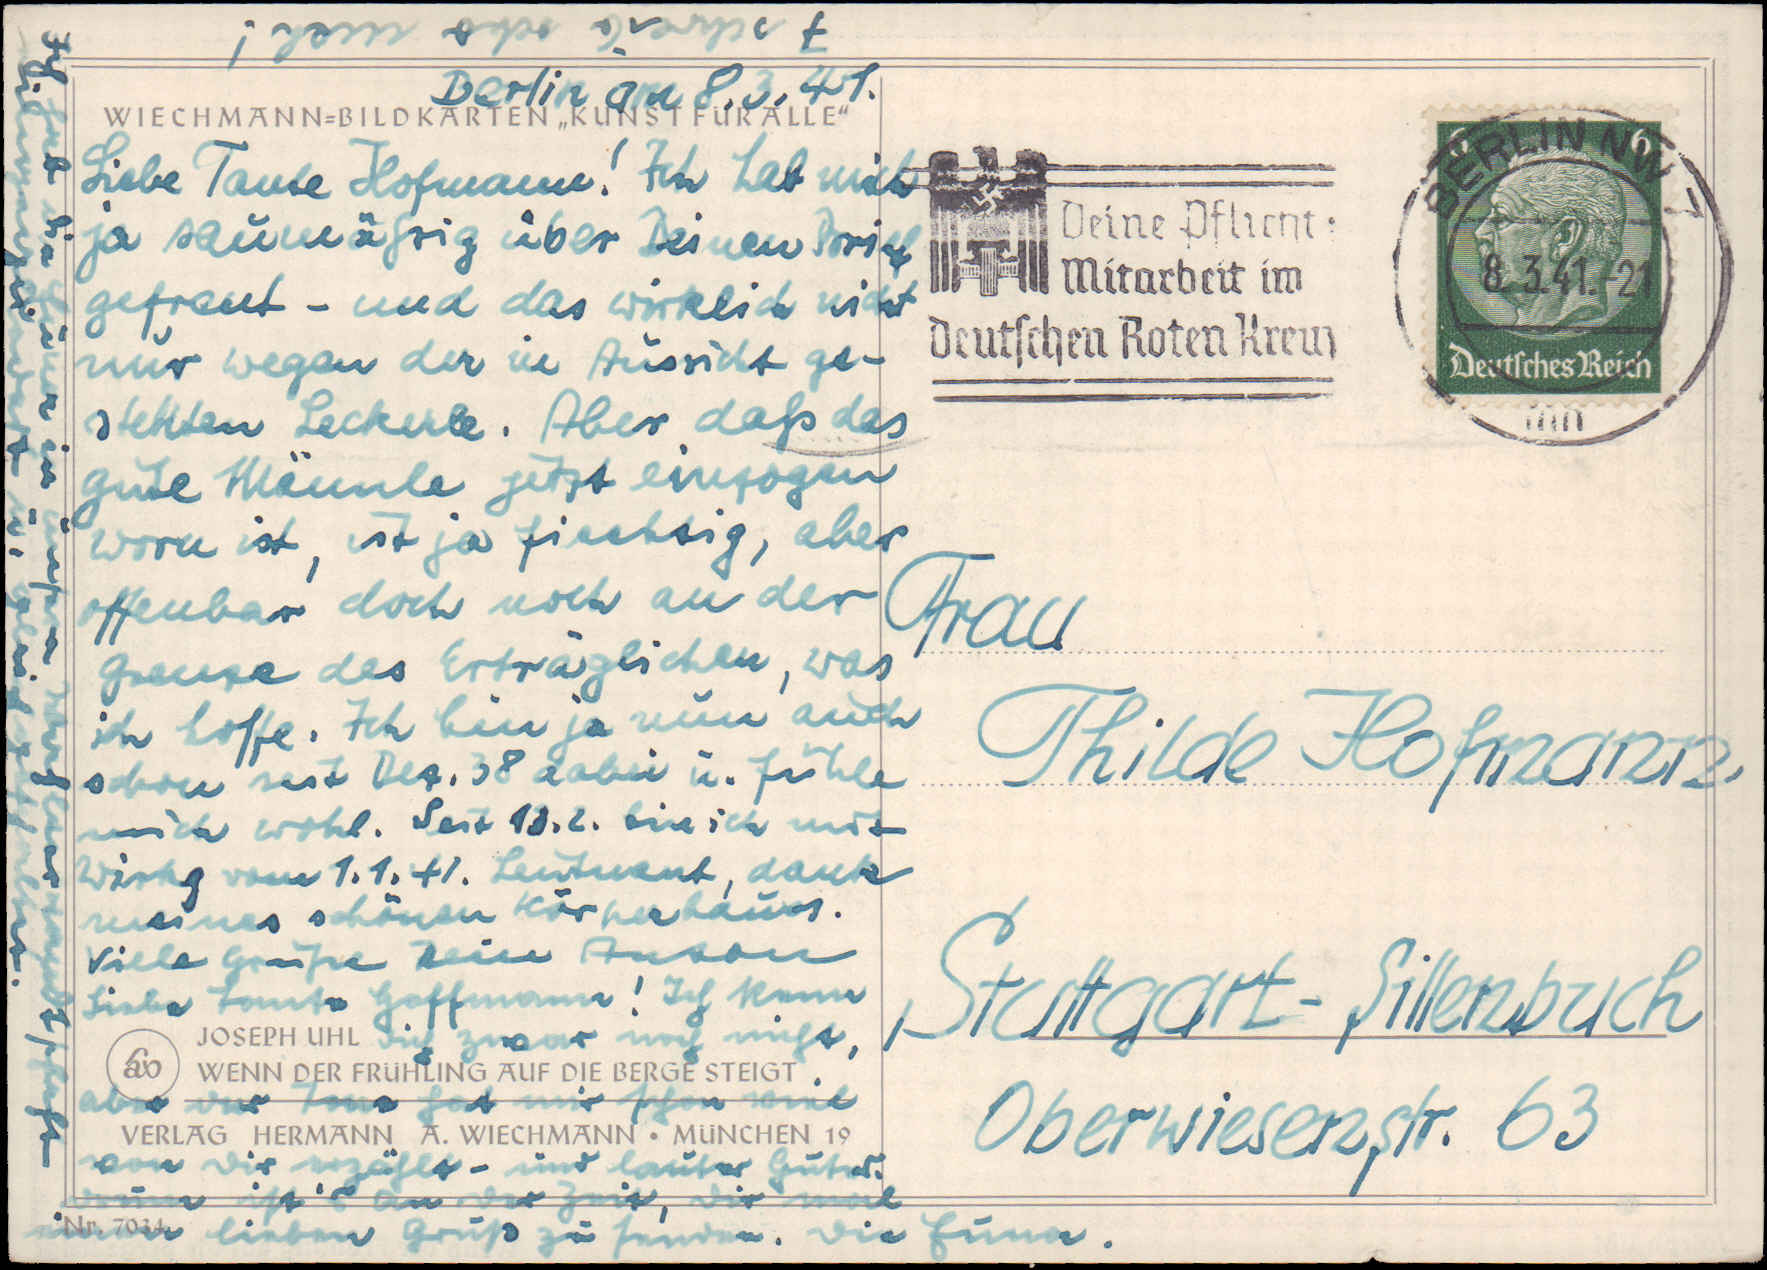 Berlin am 8.3.41.
WIECHMANN=BILDKARTEN „KUNST FÜR ALLE“
Liebe Tante Hofmann! Ich hab mich
ja saumäßig über Deinen Brief
gefreut - und das wirklich nicht
nur wegen der in Aussicht ge-
stellten Leckerle. Aber daß das
gute Männle jetzt eingzogen
worn ist, ist ja
aber
offenbar doch noch an der
Grenze des Erträglichen, was
ich hoffe. Ich bin ja nun auch
schon seit Dez. 38 dabei u. fühle
mich wohl. Seit 18.2. bin ich mit
Wirkg vom 1.1.41. Leutnant, dank
meines schönen Körperbaues.
Viele Grüße Dein Anton
Liebe Tante Hoffmann! Ich kenn
Dich zwar noch nicht,
aber der Tone hat mir schon viel
von Dir erzählt - und lauter Gutes.
Drum ist's an der Zeit, Dir mal
einen lieben Gruß zu senden. Die
JOSEPH UHL
WENN DER FRÜHLING AUF DIE BERGE STEIGT
VERLAG HERMANN A. WIECHMANN • MÜNCHEN 19
Nr. 7034
Deine Pflicht:
Mitarbeit im
Deutschen Roten Kreuz
BERLIN NW 7
8.3.41.-21
6 6
Deutsches Reich
Frau
Thilde Hofmann,
Stuttgart-Sillenbuch
Oberwiesenstr. 63